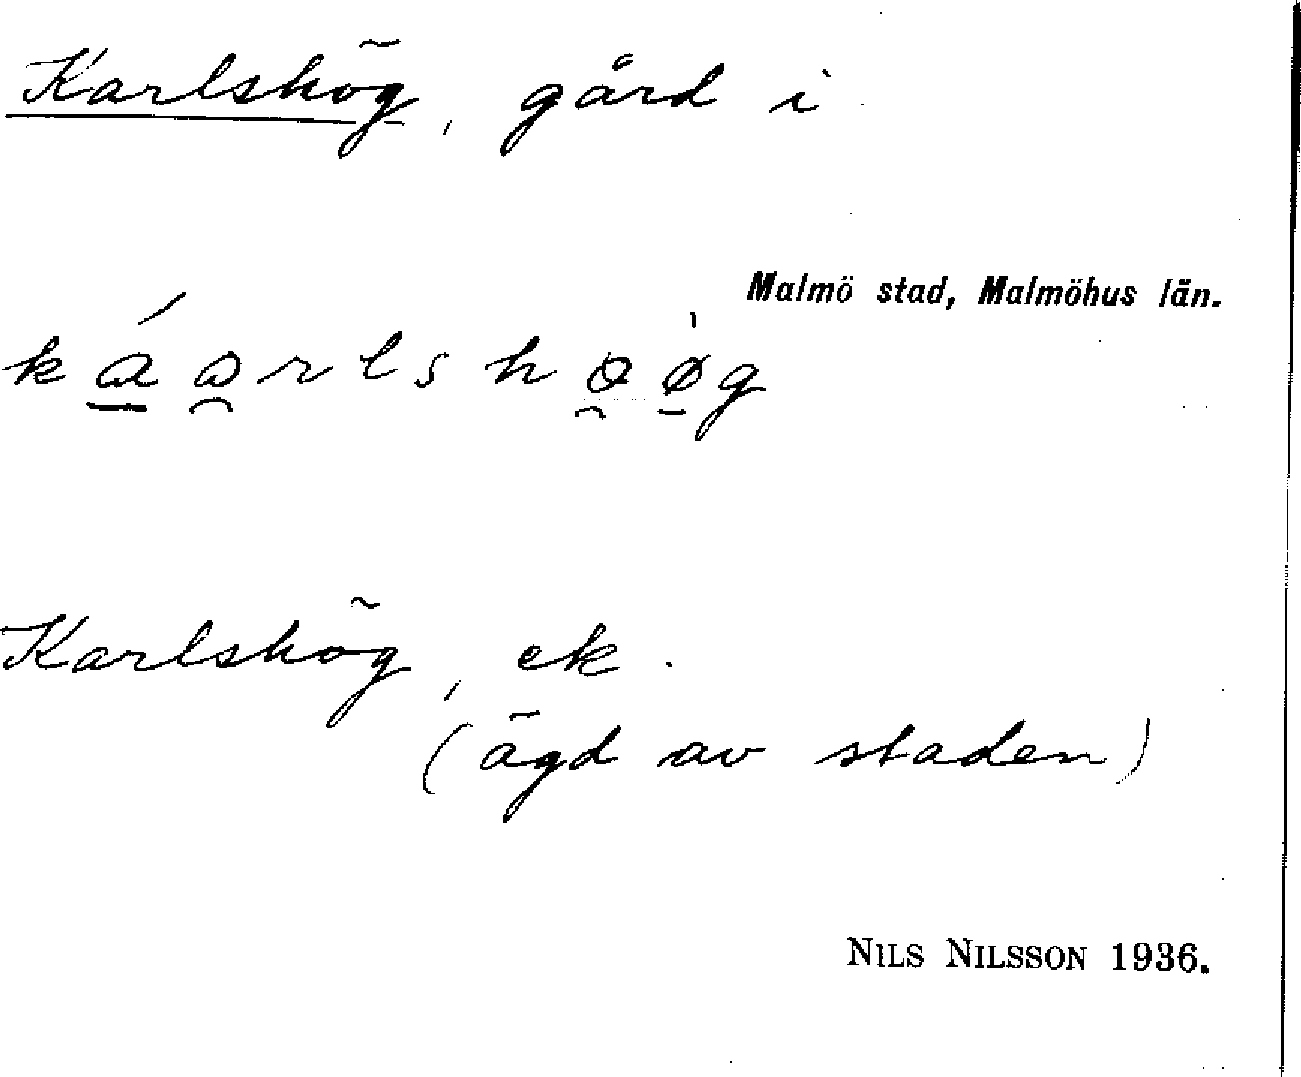 Karlshög, gård i
Malmö stad, Malmöhus län.
káarlshoø̀g
Karlshög, ek.
(ägd av staden)
NILS NILSSON 1936.